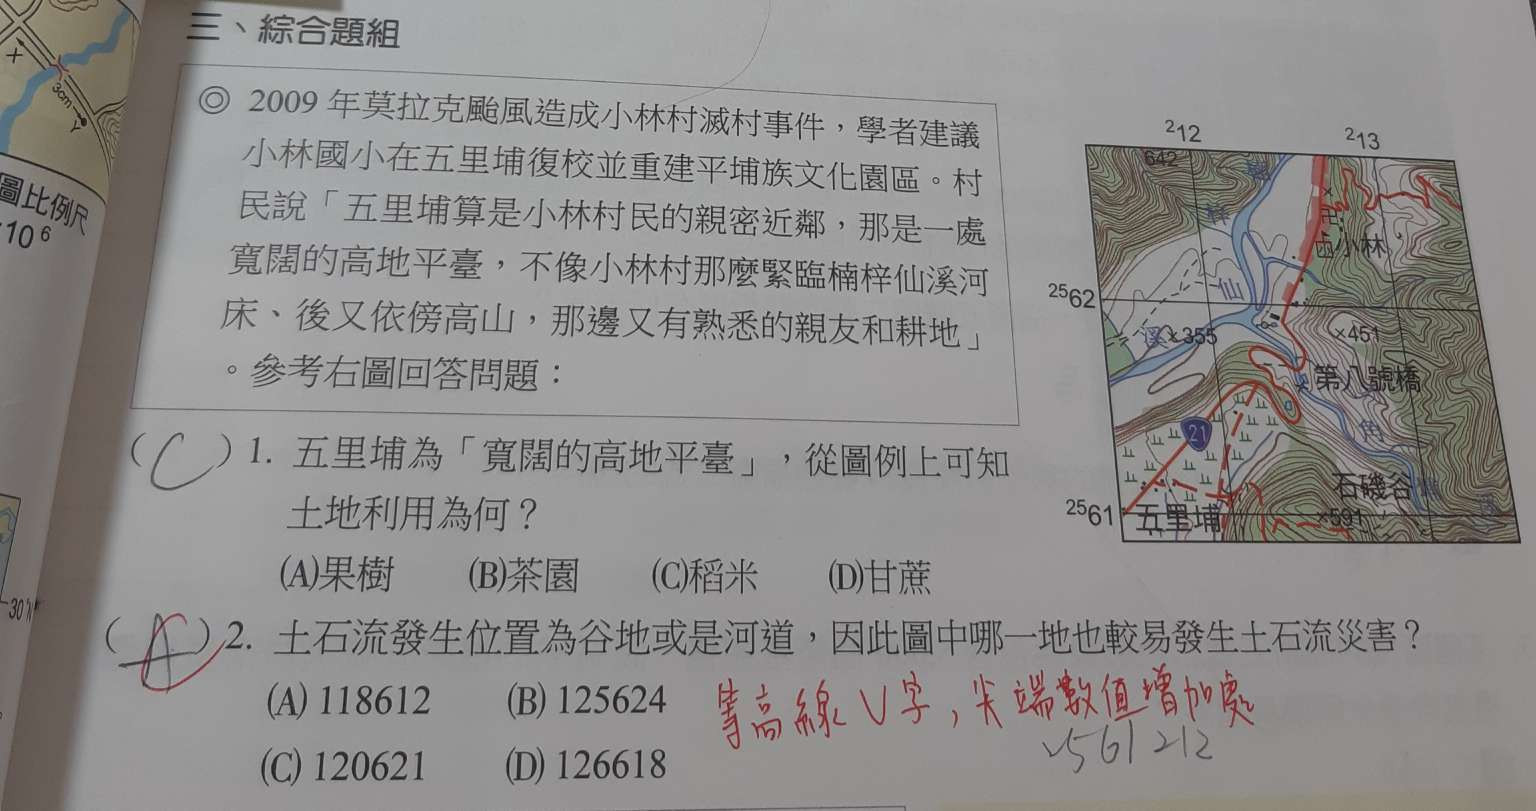 三、綜合題組
◎ 2009 年莫拉克颱風造成小林村滅村事件，學者建議
小林國小在五里埔復校並重建平埔族文化園區。村
民說「五里埔算是小林村民的親密近鄰，那是一處
寬闊的高地平臺，不像小林村那麼緊臨楠梓仙溪河
床、後又依傍高山，那邊又有熟悉的親友和耕地」
。參考右圖回答問題：
(C) 1. 五里埔為「寬闊的高地平臺」，從圖例上可知
土地利用為何？
(A)果樹 (B)茶園 (C)稻米 (D)甘蔗
(A) 2. 土石流發生位置為谷地或是河道，因此圖中哪一地也較易發生土石流災害？
(A) 118612 (B) 125624
(C) 120621 (D) 126618
等高線 V 字，尖端數值增加處
2561 212
²12 ²13
642
梓
卍
小林
²⁵62
仙
溪
×355
×451
第八號橋
21
角
石磯谷
²⁵61
五里埔
×591
溪
圖比例尺
10⁶
3cm
30°N